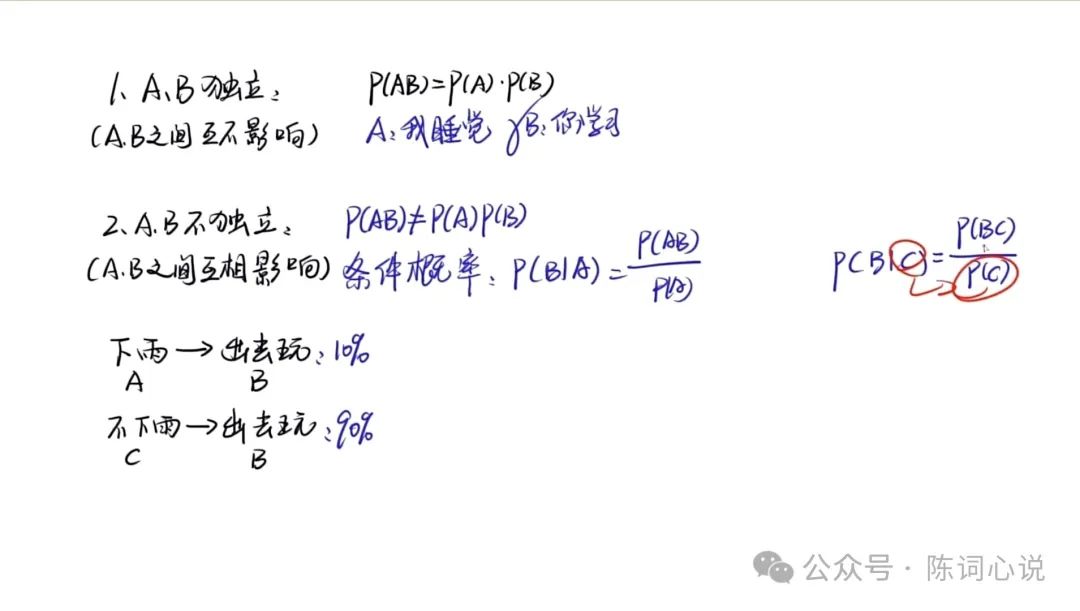 1、A、B独立： P(AB)=P(A)·P(B)
(A、B之间互不影响) A：我睡觉 B：你学习
2、A、B不独立： P(AB)≠P(A)P(B)
(A、B之间互相影响) 条件概率：P(B|A)=P(AB)/P(A) P(B|C)=P(BC)/P(C)
下雨→出去玩：10%
A B
不下雨→出去玩：90%
C B
公众号·陈词心说